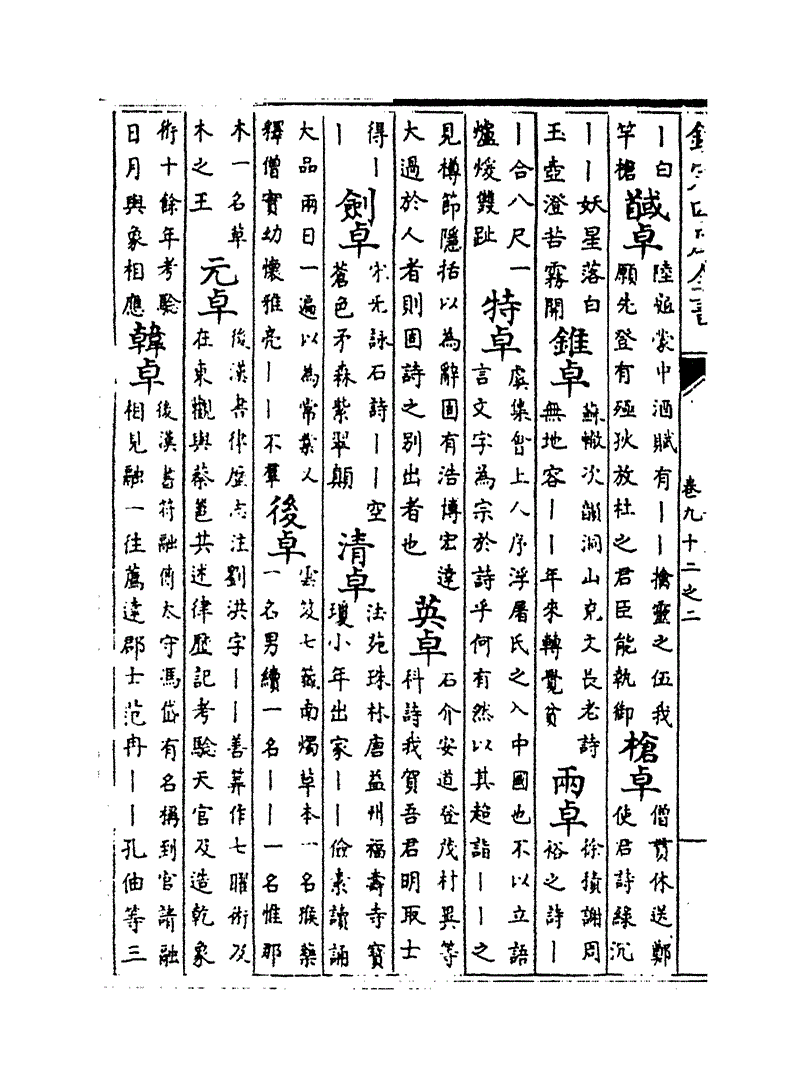 欽定四庫全書
卷九十二之二
｜白
竿槍
馘卓
陸龜蒙中酒賦有｜｜擒靈之伍我
願先登有殛狄放杜之君臣能執御
槍卓
僧貫休送鄭
使君詩綠沉
｜｜妖星落白
玉壺澄苦霧開
錐卓
蘇轍次韻洞山克文長老詩
無地容｜｜年來轉覺貧
兩卓
徐積謝周
裕之詩｜
｜合八尺一
爐煖雙趾
特卓
虞集會上人序浮屠氏之入中國也不以立語
言文字為宗於詩乎何有然以其超詣｜｜之
見樽節隱括以為辭固有浩博宏達
大過於人者則固詩之別出者也
英卓
石介安道登茂材異等
科詩我賀吾君明取士
得｜
｜
劍卓
宋无詠石詩｜｜空
蒼色矛森紫翠顛
清卓
法苑珠林唐益州福壽寺寶
瓊小年出家｜｜儉素讀誦
大品兩日一遍以為常業又
釋僧實幼懷雅亮｜｜不羣
後卓
雲笈七籤南燭草木一名猴藥
一名男續一名｜｜一名惟那
木一名草
木之王
元卓
後漢書律歷志注劉洪字｜｜善算作七曜術及
在東觀與蔡邕共述律歷記考驗天官及造乾象
術十餘年考驗
日月與象相應
韓卓
後漢書符融傳太守馮岱有名稱到官請融
相見融一往薦達郡士范冉｜｜孔伷等三